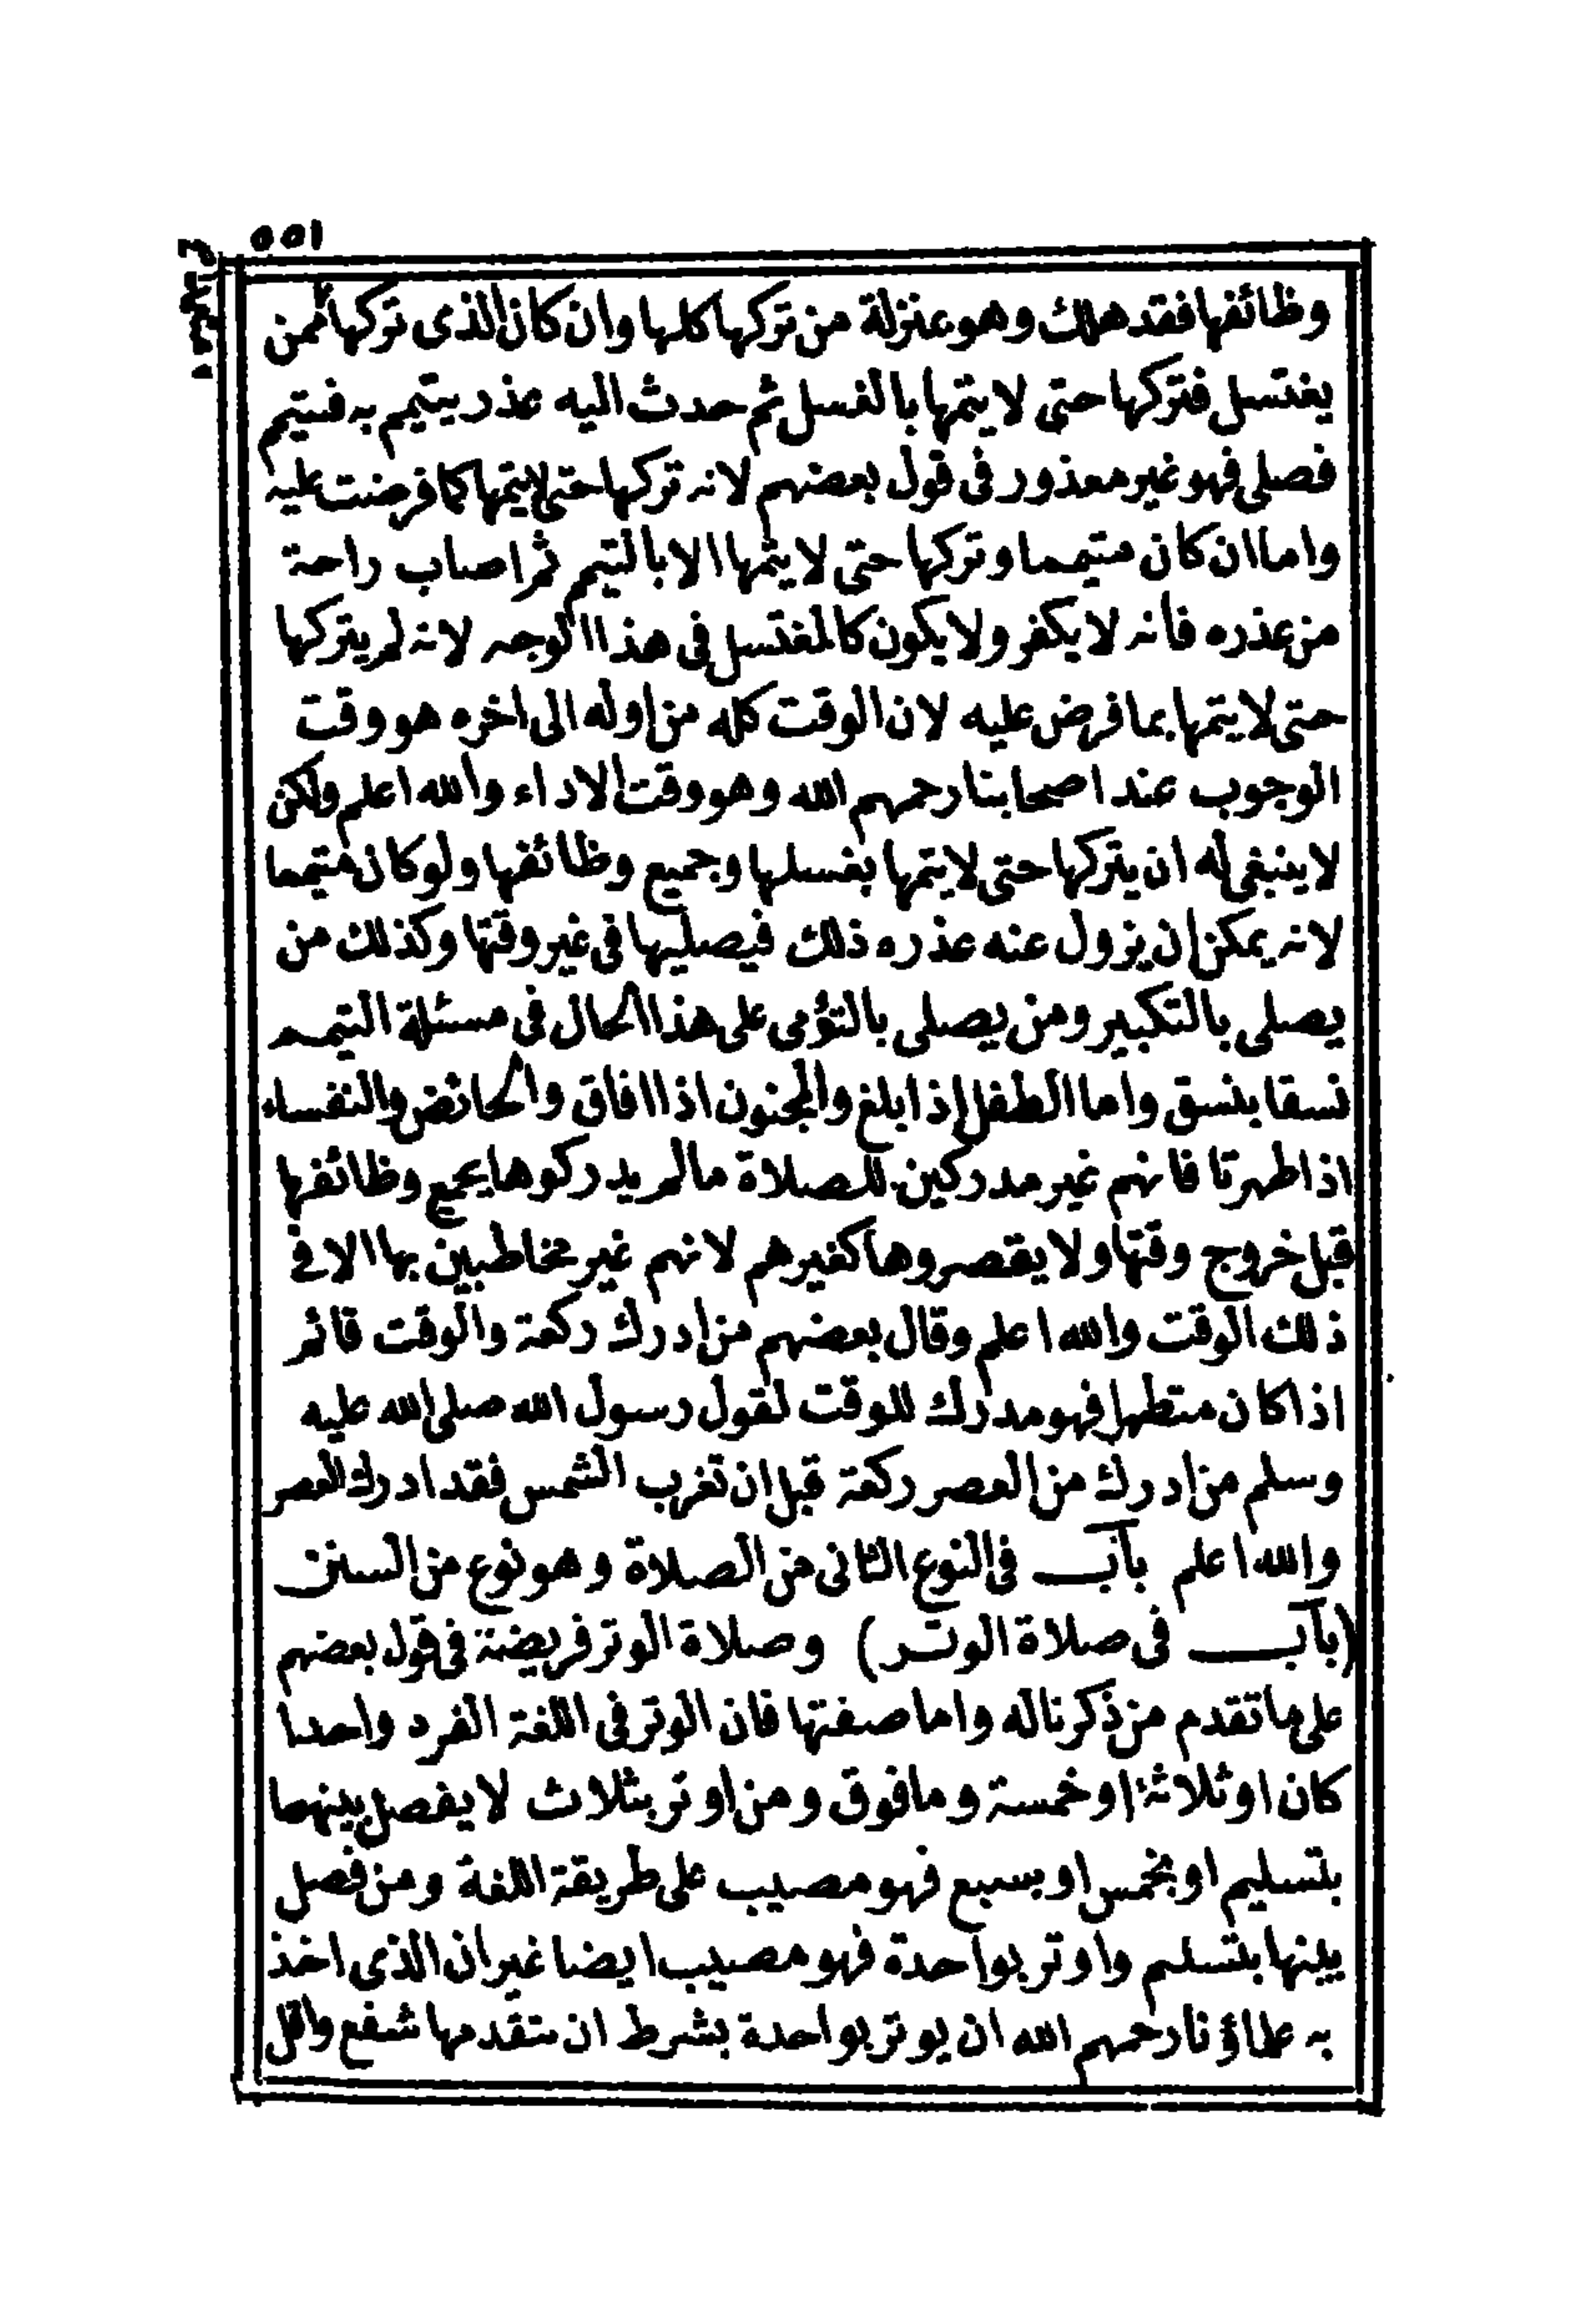 ١٥٥
وظائفها فقد هلك وهو بمنزلة من تركها كلها وان كان الذى تركها ممن
يغتسل فتركها حتى لا يتمها بالغسل ثم حدث اليه عذر يتيمم به فتيمم
فصلى فهو غير معذور فى قول بعضهم لانه تركها حتى لا يتمها كما فرضت عليه
واما ان كان متيمما وتركها حتى لا يتمها الا بالتيمم ثم اصاب راحة
من عذره فانه لا يكفر ولا يكون كالمغتسل فى هذا الوجه لانه لم يتركها
حتى لا يتمها بما فرض عليه لان الوقت كله من اوله الى اخره هو وقت
الوجوب عند اصحابنا رحمهم الله وهو وقت الاداء والله اعلم ولكن
لا ينبغى له ان يتركها حتى لا يتمها بغسلها وجميع وظائفها ولو كان متيمما
لانه يمكن ان يزول عنه عذره ذلك فيصليها فى غير وقتها وكذلك من
يصلى بالتكبير ومن يصلى بالتؤمى على هذا الحال فى مسئلة التيمم
نسقا بنسق واما الطفل اذا بلغ والمجنون اذا افاق والحائض والنفساء
اذا طهرتا فانهم غير مدركين للصلاة ما لم يدركوها بجميع وظائفها
قبل خروج وقتها ولا يقصروها كغيرهم لانهم غير مخاطبين بها الا فى
ذلك الوقت والله اعلم وقال بعضهم من ادرك ركعة والوقت قائم
اذا كان متطهرا فهو مدرك للوقت لقول رسول الله صلى الله عليه
وسلم من ادرك من العصر ركعة قبل ان تغرب الشمس فقد ادرك العصر
والله اعلم باب فى النوع الثانى من الصلاة وهو نوع من السنن
(باب فى صلاة الوتر) وصلاة الوتر فريضة فى قول بعضهم
على ما تقدم من ذكرنا له واما صفتها فان الوتر فى اللغة الفرد واحدا
كان او ثلاثة او خمسة وما فوق ومن اوتر بثلاث لا يفصل بينهما
بتسليم او بخمس او بسبع فهو مصيب على طريقة اللغة ومن فصل
بينها بتسليم واوتر بواحدة فهو مصيب ايضا غير ان الذى اخذ
به علماؤنا رحمهم الله ان يوتر بواحدة بشرط ان يتقدمها شفع واقل